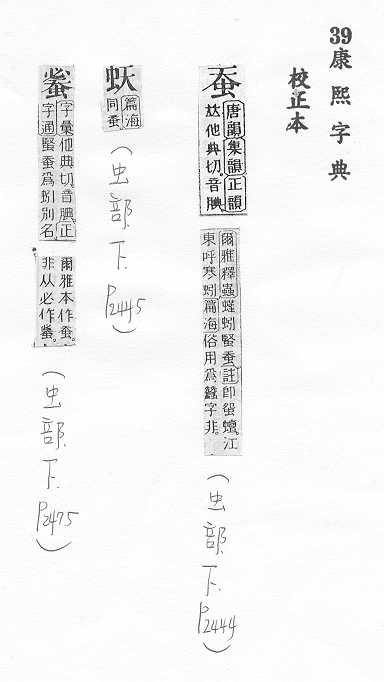 39康熙字典
校正本
蚕
唐韻集韻正韻
𠀤他典切音腆
爾雅釋蟲螼蚓豎蚕註卽蛩蟺江
東呼寒蚓篇海俗用爲蠶字非
(虫部下P2444)
蚕
篇海
同蚕
(虫部下P2445)
字彙他典切音腆正
字通豎蚕爲蚓別名
爾雅本作蚕
非从必作
(虫部下P2475)